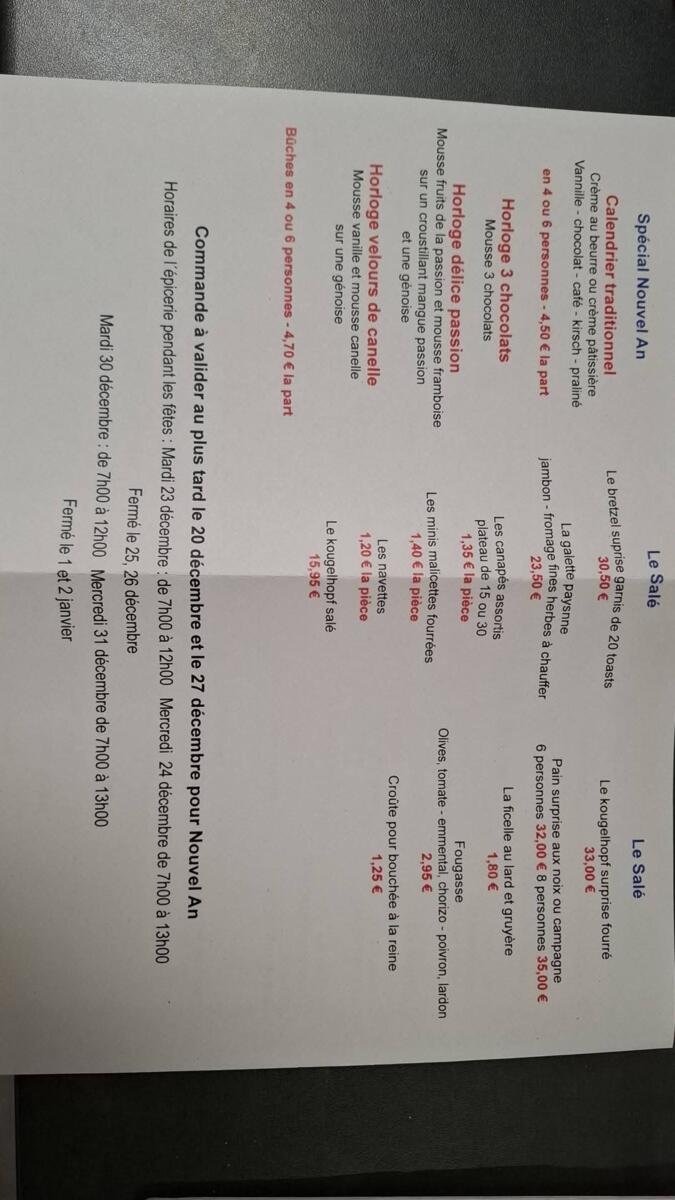 Spécial Nouvel An
Calendrier traditionnel
Crème au beurre ou crème pâtissière
Vannille - chocolat - café - kirsch - praliné
en 4 ou 6 personnes - 4,50 € la part
Horloge 3 chocolats
Mousse 3 chocolats
Horloge délice passion
Mousse fruits de la passion et mousse framboise
sur un croustillant mangue passion
et une génoise
Horloge velours de canelle
Mousse vanille et mousse canelle
sur une génoise
Bûches en 4 ou 6 personnes - 4,70 € la part
Le Salé
Le bretzel suprise garnis de 20 toasts
30,50 €
La galette paysnne
jambon - fromage fines herbes à chauffer
23,50 €
Les canapés assortis
plateau de 15 ou 30
1,35 € la pièce
Les minis malicettes fourrées
1,40 € la pièce
Les navettes
1,20 € la pièce
Le kougelhopf salé
15,95 €
Le Salé
Le kougelhopf surprise fourré
33,00 €
Pain surprise aux noix ou campagne
6 personnes 32,00 € 8 personnes 35,00 €
La ficelle au lard et gruyère
1,80 €
Fougasse
Olives, tomate - emmental, chorizo - poivron, lardon
2,95 €
Croûte pour bouchée à la reine
1,25 €
Commande à valider au plus tard le 20 décembre et le 27 décembre pour Nouvel An
Horaires de l'épicerie pendant les fêtes : Mardi 23 décembre : de 7h00 à 12h00 Mercredi 24 décembre de 7h00 à 13h00
Fermé le 25, 26 décembre
Mardi 30 décembre : de 7h00 à 12h00 Mercredi 31 décembre de 7h00 à 13h00
Fermé le 1 et 2 janvier